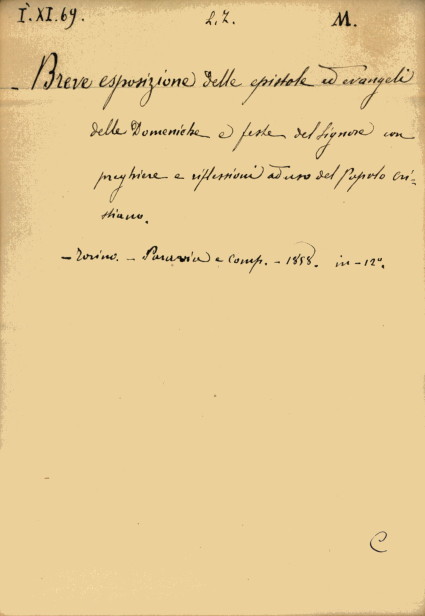 I.XI.69. L.Z. M.
Breve esposizione delle epistole ed evangeli
delle Domeniche e feste del Signore con
preghiere e riflessioni ad uso del Popolo Cri-
stiano.
- Torino. - Paravia e Comp. - 1858. in-12º.
C